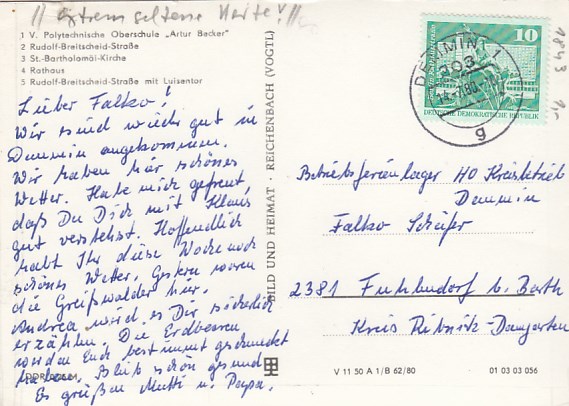 !! extrem seltene Karte! !!
1 V. Polytechnische Oberschule „Artur Becker"
2 Rudolf-Breitscheid-Straße
3 St.-Bartholomäi-Kirche
4 Rathaus
5 Rudolf-Breitscheid-Straße mit Luisentor
Lieber Falko!
Wir sind wieder gut in
Demmin angekommen.
Wir haben hier schönes
Wetter. Habe mich gefreut,
daß Du Dich mit Klaus
gut verstehst. Hoffendlich
habt Ihr diese Woche noch
schönes Wetter. Gestern waren
die Greifswalder hier.
Andrea wird es Dir sicherlich
erzählen. Die Erdbeeren
werden Euch bestimmt geschmeckt
haben. Bleib schön gesund
Es grüßen Mutti u. Papa.
BILD UND HEIMAT · REICHENBACH (VOGTL)
10
DEUTSCHE DEMOKRATISCHE REPUBLIK
DEMMIN 1
g
1843
Betriebsferienlager HO Kreisbetrieb
Demmin
Falko Schäfer
2381 Fuhlendorf b. Barth
Kreis Ribnitz-Damgarten
V 11 50 A 1/B 62/80
01 03 03 056